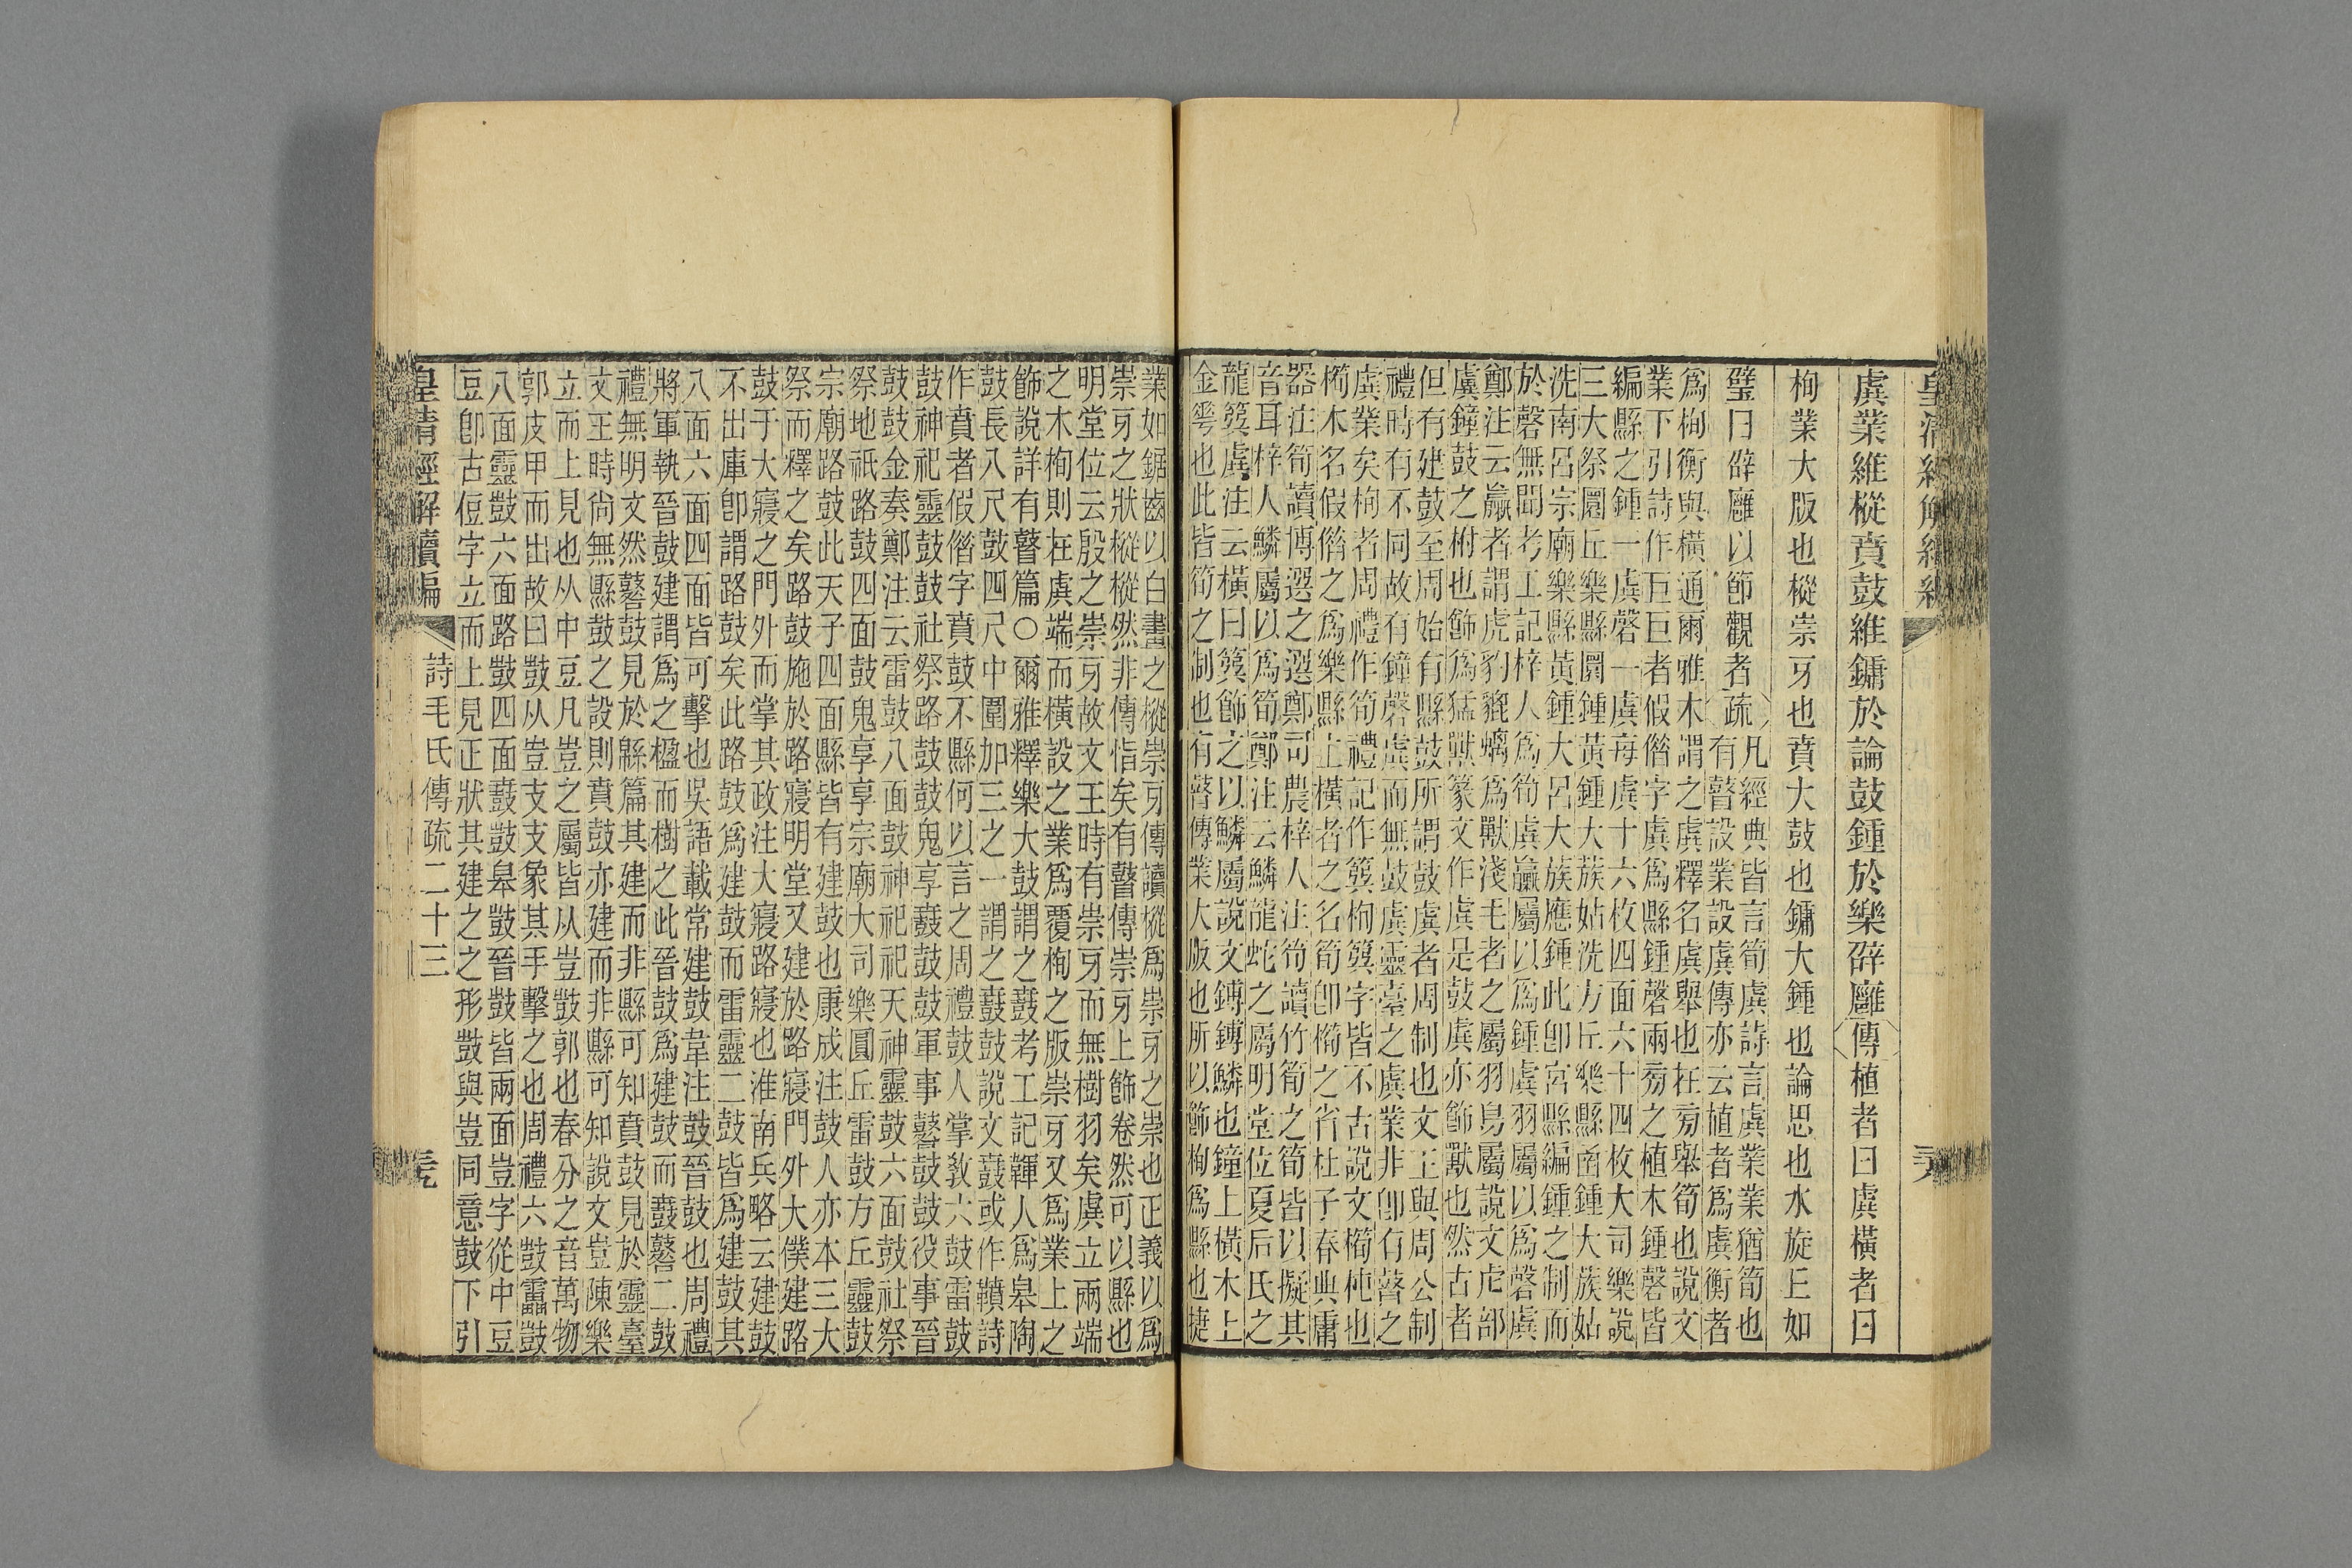 虡業維樅賁鼓維鏞於論鼓鍾於樂辟廱傳植者曰虡橫者曰
栒業大版也樅崇牙也賁大鼓也鏞大鍾也論思也水旋丘如
璧曰辟廱以節觀者疏凡經典皆言筍虡詩言虡業業猶筍也
有瞽設業設虡傳亦云植者爲虡衡者
爲栒衡與橫通爾雅木謂之虡釋名虡舉也在旁舉筍也說文
業下引詩作巨巨者假偕字虡爲縣鍾磬兩旁之植木鍾磬皆
編縣之鍾一虡磬一虡每虡十六枚四面六十四枚大司樂說
三大祭圜丘樂縣圜鍾黃鍾大蔟姑洗方丘樂縣函鍾大蔟姑
洗南呂宗廟樂縣黃鍾大呂大蔟應鍾此卽宮縣編鍾之制而
於磬無聞考工記梓人爲筍虡臝屬以爲鍾虡羽屬以爲磬虡
鄭注云臝者謂虎豹貔螭爲獸淺毛者之屬羽鳥屬說文虍部
虡鐘鼓之柎也飾爲猛獸篆文作虡是鼓虡亦飾獸也然古者
但有建鼓至周始有縣鼓所謂鼓虡者周制也文王與周公制
禮時有不同故有鐘磬虡而無鼓虡靈臺之虡業非卽有瞽之
虡業矣栒者周禮作筍禮記作簨栒簨字皆不古說文㮴杶也
㮴木名假偕之爲樂縣上橫者之名筍卽㮴之省杜子春典庸
器注筍讀博選之選鄭司農梓人注筍讀竹筍之筍皆以擬其
音耳梓人鱗屬以爲筍鄭注云鱗龍蛇之屬明堂位夏后氏之
龍簨虡注云橫曰簨飾之以鱗屬說文鎛鎛鱗也鐘上橫木上
金華也此皆筍之制也有瞽傳業大版也所以飾栒爲縣也捷
業如鋸齒以白畫之樅崇牙傳讀樅爲崇牙之崇也正義以爲
崇牙之狀樅樅然非傳恉矣有瞽傳崇牙上飾卷然可以縣也
明堂位云殷之崇牙故文王時有崇牙而無樹羽矣虡立兩端
之木栒則在虡端而橫設之業爲覆栒之版崇牙又爲業上之
飾說詳有瞽篇○爾雅釋樂大鼓謂之鼖考工記韗人爲皋陶
鼓長八尺鼓四尺中圍加三之一謂之鼖鼓說文鼖或作鞼詩
作賁者假偕字賁鼓不縣何以言之周禮鼓人掌敎六鼓雷鼓
鼓神祀靈鼓鼓社祭路鼓鼓鬼享鼖鼓鼓軍事鼛鼓鼓役事晉
鼓鼓金奏鄭注云雷鼓八面鼓神祀祀天神靈鼓六面鼓社祭
祭地祇路鼓四面鼓鬼享享宗廟大司樂圜丘雷鼓方丘靈鼓
宗廟路鼓此天子四面縣皆有建鼓也康成注鼓人亦本三大
祭而釋之矣路鼓施於路寢明堂又建於路寢門外大僕建路
鼓于大寢之門外而掌其政注大寢路寢也淮南兵略云建鼓
不出庫卽謂路鼓矣此路鼓爲建鼓而雷靈二鼓皆爲建鼓其
八面六面四面皆可擊也吳語載常建鼓韋注鼓晉鼓也周禮
將軍執晉鼓建謂爲之楹而樹之此晉鼓爲建鼓而鼖鼛二鼓
禮無明文然鼛鼓見於緜篇其建而非縣可知賁鼓見於靈臺
文王時尙無縣鼓之設則賁鼓亦建而非縣可知說文豈陳樂
立而上見也从中豆凡豈之屬皆从豈鼓郭也春分之音萬物
郭皮甲而出故曰鼓从豈支支象其手擊之也周禮六鼓靁鼓
八面靈鼓六面路鼓四面鼖鼓皋鼓晉鼓皆兩面豈字從中豆
豆卽古侸字立而上見正狀其建之之形鼓與豈同意鼓下引
皇淸經解續編
詩毛氏傳疏二十三